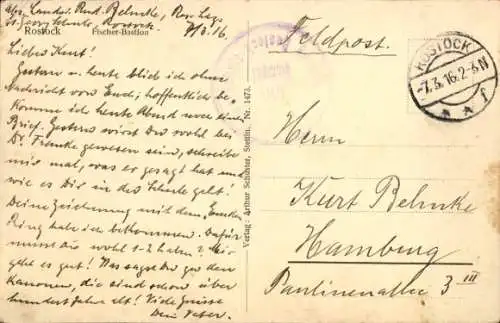 Abs. Landw. Rud. Behncke, Res. Laz.
St. Georgschule, Rostock. 7/3.16
Rostock Fischer-Bastion
Lieber Kurt!
Gestern u. heute blieb ich ohne
Nachricht von Euch; hoffentlich be-
komme ich heute Abend noch einen
Brief. Gestern wirst Du wohl bei
Dr. gewesen sein, schreibe
mir mal, was er gesagt hat und
wie es Dir in der Schule geht!
Deine Zeichnung mit dem
Ring habe ich bekommen. Dafür
musst die wohl 1-2 haben?
geht es gut! Was sagst Du zu den
Kanonen, die sind schon über
hundert Jahre alt! Viele Grüsse
Dein Vater.
Verlag: Arthur Schuster, Stettin. Nr. 1473.
Feldpost.
ROSTOCK
-7.3.16.2-3N
* * f
Herrn
Kurt Behncke
Hamburg
Paulinenallee 3 III